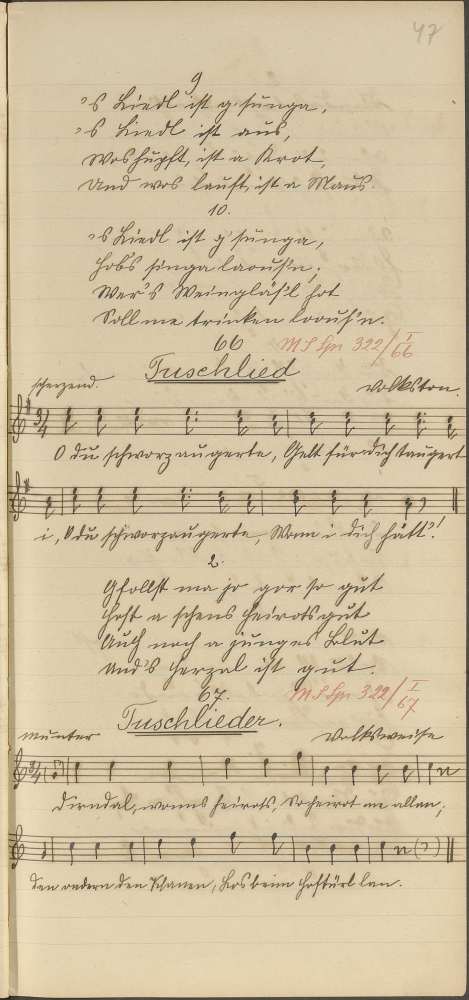 47
9
's Liedl ist g'sunga,
's Liedl ist aus,
Wos hupft, ist a Krot,
Und wos lauft, ist a Maus.
10.
's Liedl ist g'sunga,
Hobs singa laous'n;
Wer's Weingläs'l hot
Soll me trinken loous'n.
66 MS Spr 322/I 66
Tuschlied
scherzend. Volkston.
O du schworzaugerte, Gelt für dich taugert
i, O du schworzaugerte, Wonn i dich hätt'!
2.
Gfollst ma jo gor so gut
Host a schens Heirotsgut
Auch noch a junges Blut
Und's Herzal ist gut.
67. MS Spr 322/I 67
Tuschlieder.
munter Volksweise
Dirndal, wonns heirots, So heirot me allan;
Den ondern den Schanen, Los beim Hoftürl lan.